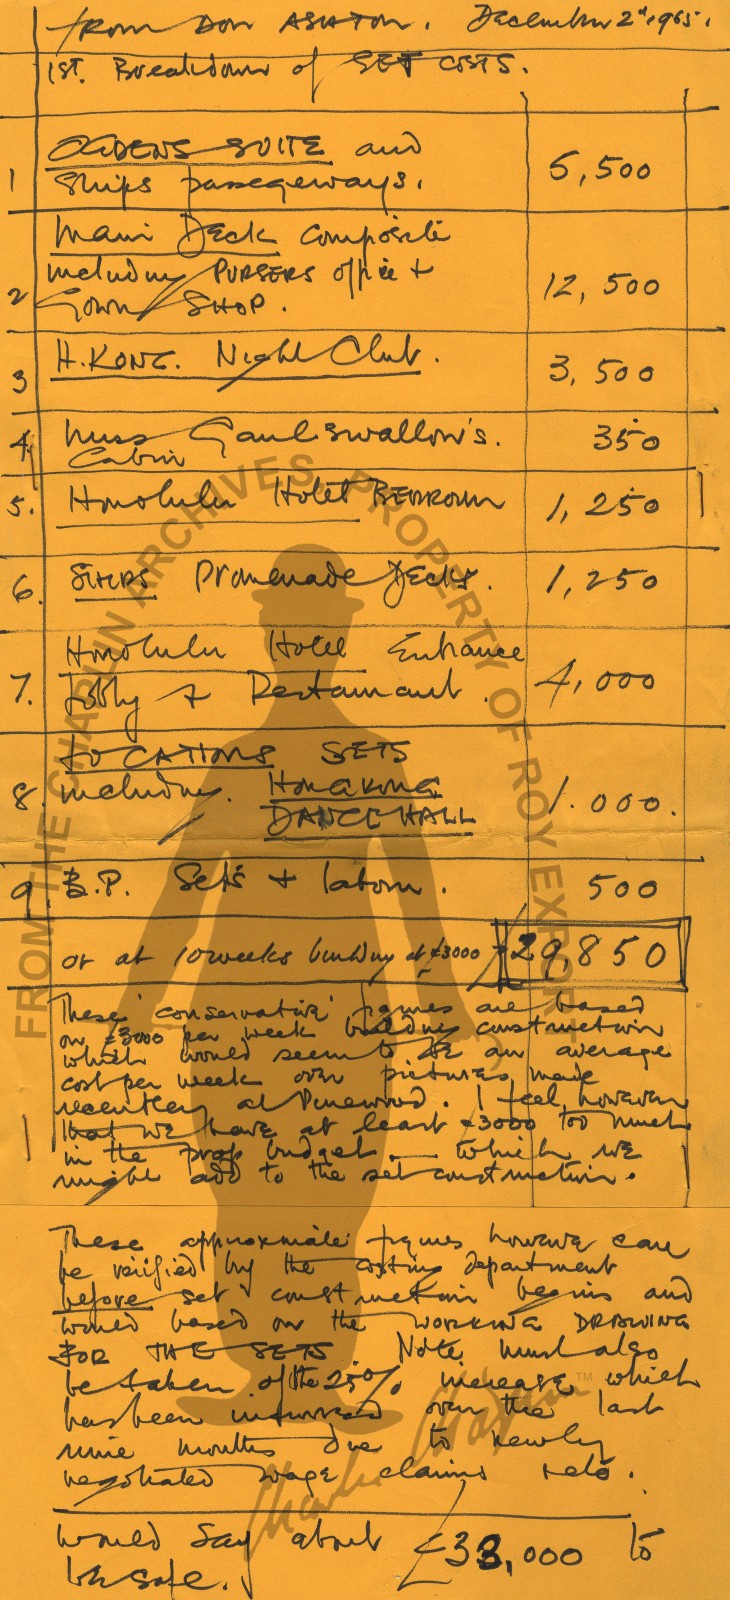 from Don Ashton. December 2nd 1965.
1st. Breakdown of SET COSTS.
1 OGDENS SUITE and
Ships passageways. 5,500
2 Main Deck Composite
including PURSERS office +
Gown SHOP. 12,500
3 H. KONG. Night Club. 3,500
4 Miss Gaulswallow's.
Cabin 350
5. Honolulu Hotel BEDROOM 1,250
6. SHIPS Promenade Decks. 1,250
7. Honolulu Hotel Entrance
Lobby + Restaurant. 4,000
8. LOCATIONS SETS
including. HONG KONG
DANCE HALL 1.000.
9. B.P. Sets + labour. 500
or at 10 weeks building at £3000 29,850
These 'conservative' figures are based
on £3000 per week building construction
which would seem to be an average
cost per week over pictures made
recently at Pinewood. I feel, however
that we have at least £3000 too much
in the prop budget — which we
might add to the set construction.
These approximate figures however can
be verified by the costing department
before set construction begins and
would based on the WORKING DRAWING
FOR THE SETS Note must also
be taken of the 25% increase which
has been incurred over the last
nine months due to newly
negotiated wage claims
would say about £33,000 to
be safe.
FROM THE CHAPLIN ARCHIVES, PROPERTY OF ROY EXPORT
Charlie Chaplin™